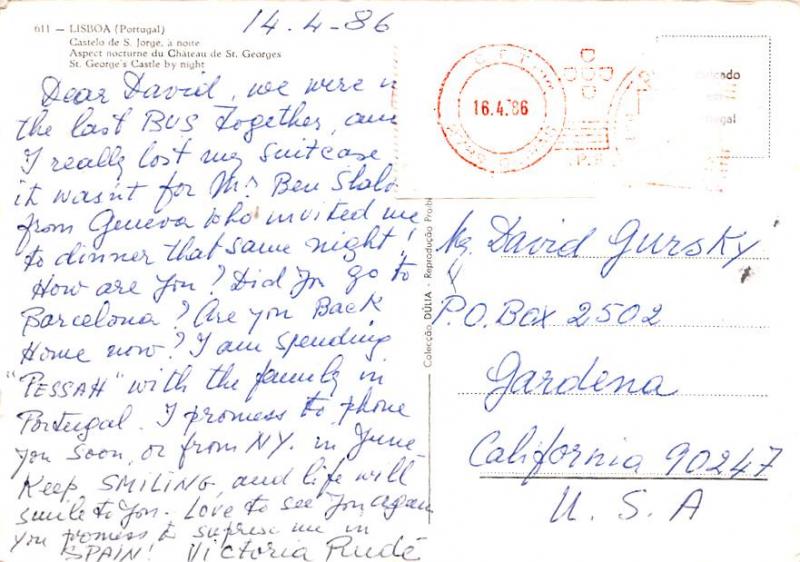 611 — LISBOA (Portugal)
Castelo de S. Jorge, à noite
Aspect nocturne du Château de St. Georges
St. George's Castle by night
14.4-86
Dear David, we were
the last BUS together,
I really lost my suitcase
it wasn't for Mr Ben
from Geneva who invited me
to dinner that same night!
How are you? Did you go to
Barcelona? Are you Back
Home now? I am spending
"PESSAH" with the family in
Portugal. I promess to phone
you soon, or from NY. in June
Keep SMILING, and life will
smile to you. Love to see you again
you promess to suprese me in
SPAIN! Victoria
Colecção DÚLIA - Reprodução Proibi
C T T
16.4.86
David Gursky
P.O. Box 2502
Gardena
California 90247
U.S.A